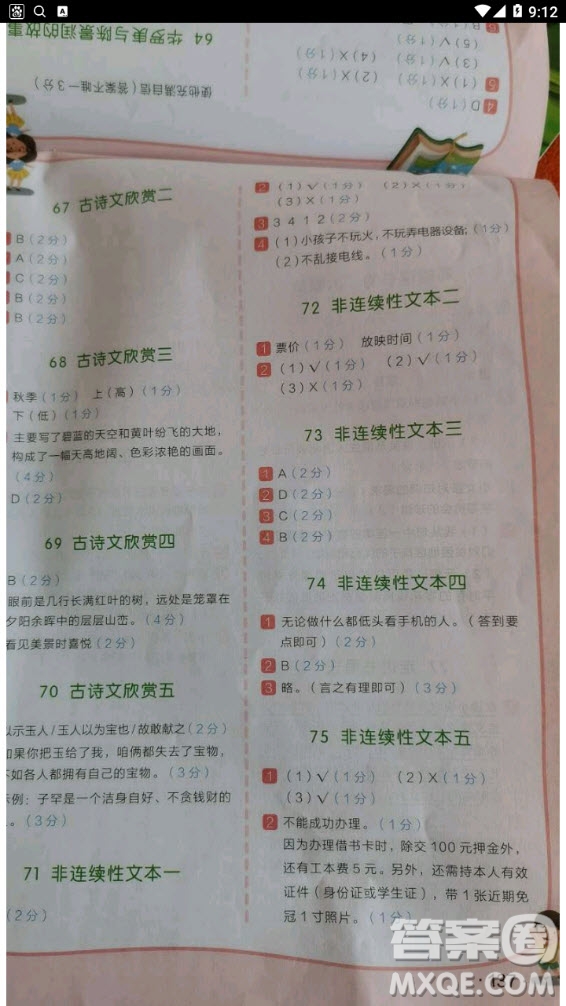 9:12
64 华罗庚与陈景润的故事
使他充满自信(答案不唯一3分)
4 D(1分)
5 (1)X(1分) (2)X(1分)
(3)√(1分) (4)X(1分)
(5)√(1分)
67 古诗文欣赏二
B(2分)
A(2分)
C(2分)
B(2分)
B(2分)
68 古诗文欣赏三
秋季(1分) 上(高)(1分)
下(低)(1分)
主要写了碧蓝的天空和黄叶纷飞的大地,
构成了一幅天高地阔、色彩浓艳的画面。
(4分)
D(2分)
69 古诗文欣赏四
B(2分)
眼前是几行长满红叶的树,远处是笼罩在
夕阳余晖中的层层山峦。(4分)
看见美景时喜悦(2分)
70 古诗文欣赏五
以示玉人/玉人以为宝也/故敢献之(2分)
如果你把玉给了我,咱俩都失去了宝物,
不如各人都拥有自己的宝物。(3分)
示例:子罕是一个洁身自好、不贪钱财的
。(3分)
71 非连续性文本一
(2分)
2 (1)√(1分) (2)X(1分)
(3)X(1分)
3 3 4 1 2(2分)
4 (1)小孩子不玩火,不玩弄电器设备;(1分)
(2)不乱接电线。(1分)
72 非连续性文本二
1 票价(1分) 放映时间(1分)
2 (1)√(1分) (2)√(1分)
(3)X(1分)
73 非连续性文本三
1 A(2分)
2 D(2分)
3 C(2分)
4 B(2分)
74 非连续性文本四
1 无论做什么都低头看手机的人。(答到要
点即可)(2分)
2 B(2分)
3 略。(言之有理即可)(3分)
75 非连续性文本五
1 (1)√(1分) (2)X(1分)
(3)√(1分)
2 不能成功办理。(1分)
因为办理借书卡时,除交100元押金外,
还有工本费5元。另外,还需持本人有效
证件(身份证或学生证),带1张近期免
冠1寸照片。(1分)
137
答案圈
MXQE.COM